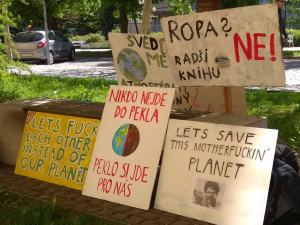 SVĚD
MĚ
ATMOSFÉRA
ROPA?
RADŠI
KNIHU
NE!
LETS FUCK
EACH OTHER
INSTEAD OF
OUR PLANET
NIKDO NEJDE
DO PEKLA
PEKLO SI JDE
PRO NÁS
LETS SAVE
THIS MOTHERFUCKIN'
PLANET